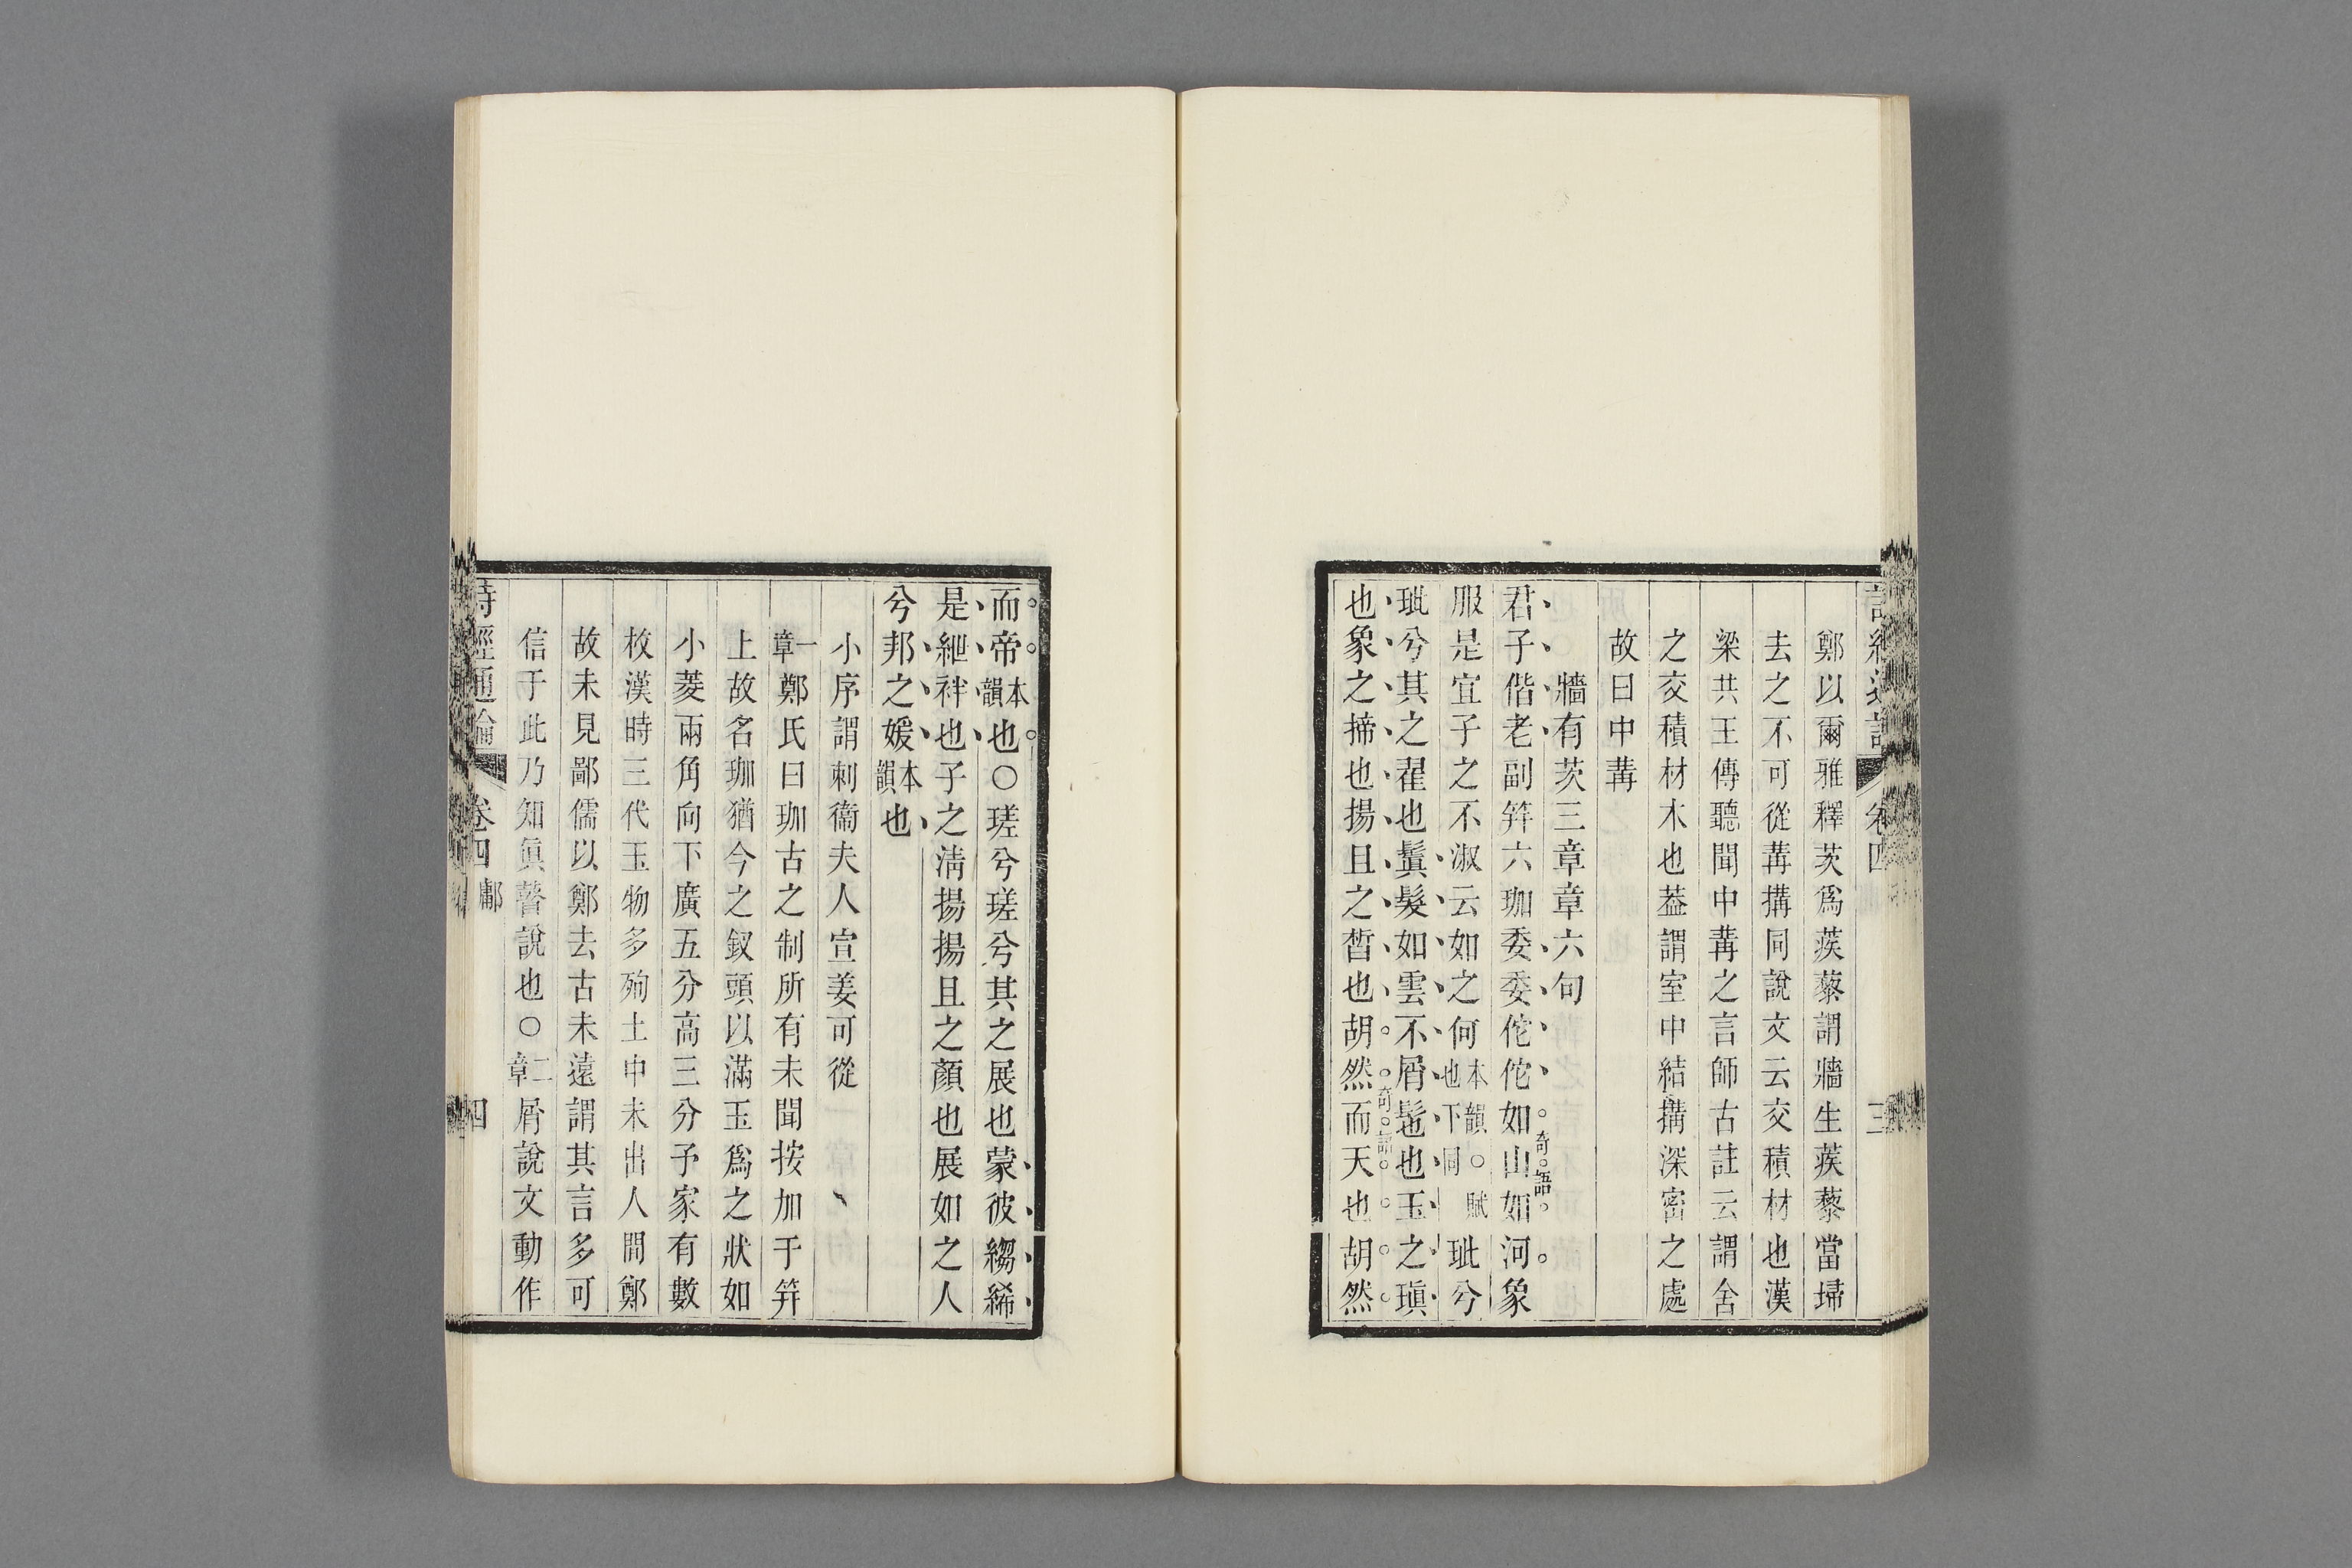 鄭以爾雅釋茨爲蒺藜謂牆生蒺藜當埽
去之不可從冓搆同說文云交積材也漢
梁共王傳聽聞中冓之言師古註云謂舍
之交積材木也葢謂室中結搆深密之處
故曰中冓
牆有茨三章章六句
君子偕老副笄六珈委委佗佗如山如河象
奇語
服是宜子之不淑云如之何本韻○賦也下同玼兮
玼兮其之翟也鬒髮如雲不屑髢也玉之瑱
也象之揥也揚且之皙也胡然而天也胡然
奇語
而帝本韻也○瑳兮瑳兮其之展也蒙彼縐絺
是紲袢也子之清揚揚且之顏也展如之人
兮邦之媛本韻也
小序謂刺衞夫人宣姜可從
一章鄭氏曰珈古之制所有未聞按加于笄
上故名珈猶今之釵頭以滿玉爲之狀如
小菱兩角向下廣五分高三分予家有數
枚漢時三代玉物多殉土中未出人間鄭
故未見鄙儒以鄭去古未遠謂其言多可
信于此乃知眞瞽說也○二章屑說文動作
詩經通論 卷四 鄘 四